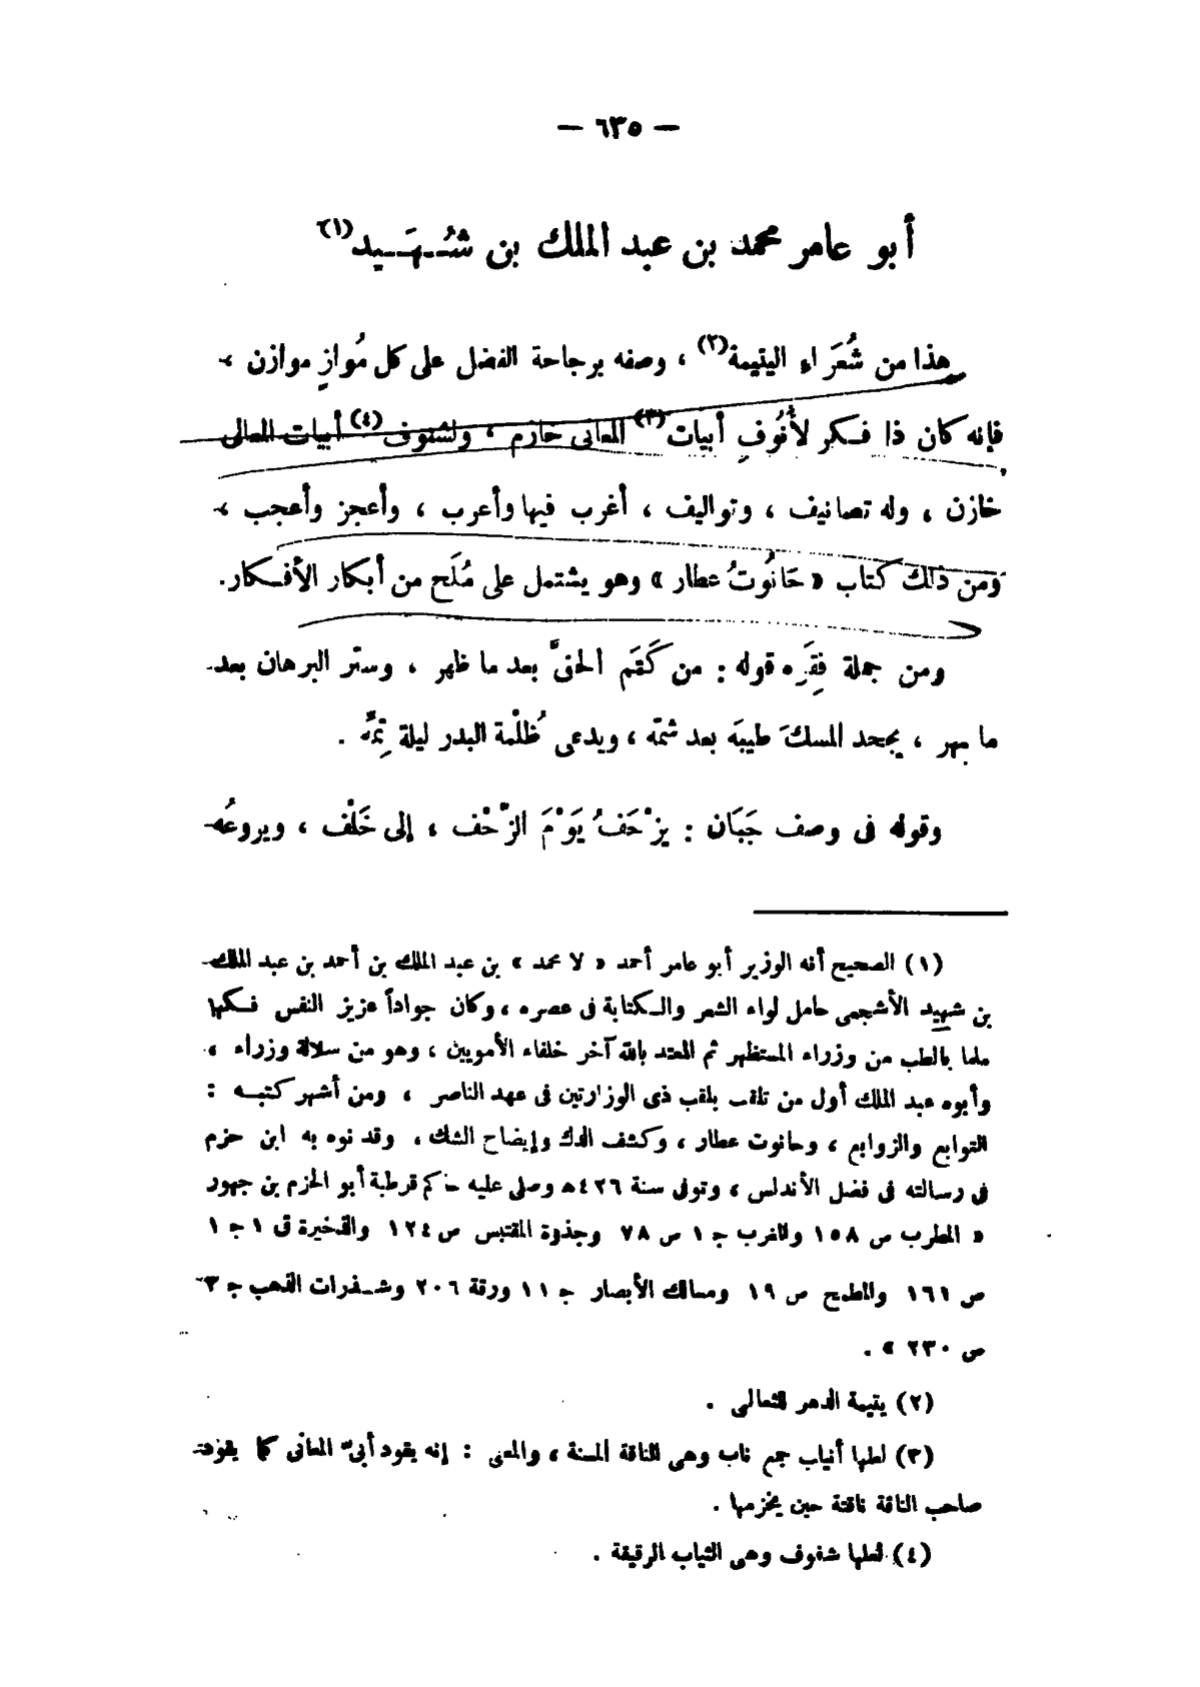 — ٦٣٥ —
أبو عامر محمد بن عبد الملك بن شُـهَـيد(١)
هذا من شُعَراء اليتيمة(٢) ، وصفه برجاحة الفضل على كل مُوازٍ موازن ،
فإنه كان ذا فكر لأُنُوفِ أبيات(٣) المعانى خازم ، ولشنوف(٤) أبيات المعالى
خازن ، وله تصانيف ، وتواليف ، أغرب فيها وأعرب ، وأعجز وأعجب ،
ومن ذلك كتاب « حَانُوتُ عطار » وهو يشتمل على مُلَح من أبكار الأفكار .
ومن جملة فِقَره قوله : من كَتَم الحقَّ بعد ما ظهر ، وستر البرهان بعد
ما بهر ، يجحد المسكَ طيبَه بعد شمّه ، ويدعى ظُلْمة البدر ليلة تِمِّه .
وقوله فى وصف جَبَان : يزْحَفُ يَوْمَ الزّحْف ، إلى خَلْف ، ويروعُه
(١) الصحيح أنه الوزير أبو عامر أحمد « لا محمد » بن عبد الملك بن أحمد بن عبد الملك
بن شهيد الأشجعى حامل لواء الشعر والكتابة فى عصره ، وكان جواداً عزيز النفس فكها
ملما بالطب من وزراء المستظهر ثم المعتد بالله آخر خلفاء الأمويين ، وهو من سلالة وزراء ،
وأبوه عبد الملك أول من تلقب بلقب ذى الوزارتين فى عهد الناصر ، ومن أشهر كتبه :
التوابع والزوابع ، وحانوت عطار ، وكشف الدك وإيضاح الشك ، وقد نوه به ابن حزم
فى رسالته فى فضل الأندلس ، وتوفى سنة ٤٢٦ھ وصلى عليه حاكم قرطبة أبو الحزم بن جهور
« المطرب ص ١٥٨ والمغرب ج ١ ص ٧٨ وجذوة المقتبس ص ١٢٤ والذخيرة ق ١ ج ١
ص ١٦١ والمطمح ص ١٩ ومسالك الأبصار ج ١١ ورقة ٢٠٦ وشذرات الذهب ج ٣
ص ٢٣٠ » .
(٢) يتيمة الدهر للثعالى .
(٣) لعلها أنياب جمع ناب وهى الناقة المسنة ، والمعنى : إنه يقود أبىّ المعانى كما يقود
صاحب الناقة ناقتة حين يخزمها .
(٤) لعلها شفوف وهى الثياب الرقيقة .